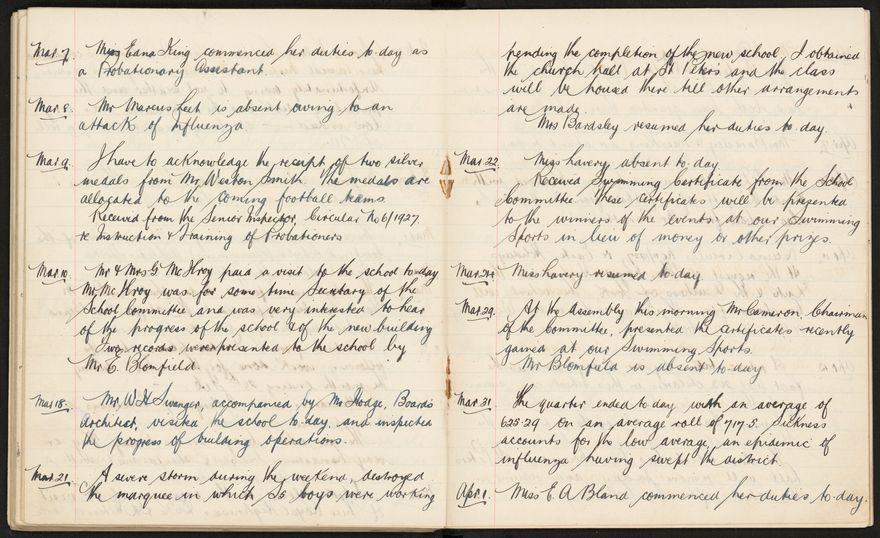 Mar. 7. Miss Edna King commenced her duties to-day as
a Probationary Assistant.
Mar. 8. Mr Marcus Leet is absent owing to an
attack of Influenza.
Mar. 9. I have to acknowledge the receipt of two silver
medals from Mr Weston Smith. The medals are
allocated to the coming football teams.
Received from the Senior Inspector, Circular No 6/1927
re Instruction & Training of Probationers
Mar. 10. Mr & Mrs G. McIlroy paid a visit to the school to-day
Mr McIlroy was for some time Secretary of the
School Committee and was very interested to hear
of the progress of the school & of the new building
Two records were presented to the school by
Mr E. Blomfield.
Mar 18. Mr. W H Swanger, accompanied by Mr Hodge, Board's
Architect, visited the school to-day, and inspected
the progress of building operations.
Mar. 21. A severe storm during the weekend, destroyed
the marquee in which 55 boys were working
pending the completion of the new school. I obtained
the church hall at St Peters and the class
will be housed there till other arrangements
are made.
Mrs Bardsley resumed her duties to day.
Mar. 22. Miss Lavery absent to-day
Received Swimming Certificate from the School
Committee. These certificates will be presented
to the winners of the events at our Swimming
Sports in lieu of money or other prizes.
Mar. 24. Miss Lavery resumed to-day.
Mar. 29. At the Assembly this morning Mr Cameron, Chairman
of the Committee, presented the certificates recently
gained at our Swimming Sports.
Mr Blomfield is absent to-day
Mar. 31. The quarter ended to day with an average of
625.29 on an average roll of 717.5. Sickness
accounts for the low average, an epidemic of
influenza having swept the district.
Apr. 1. Miss E. A Bland commenced her duties to-day.